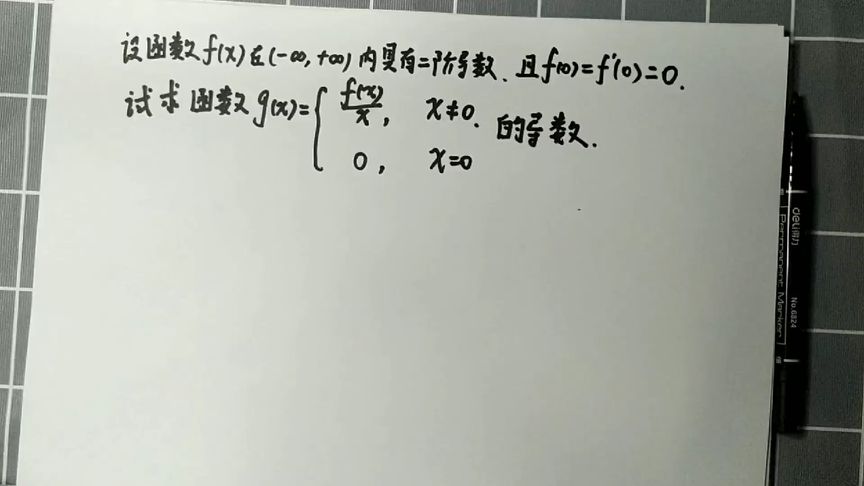 设函数f(x)在(-∞,+∞)内具有二阶导数.且f(0)=f'(0)=0.
试求函数g(x)={ f(x)/x, x≠0. 的导数.
0, x=0
deli得力
Permanent Marker
No.6824